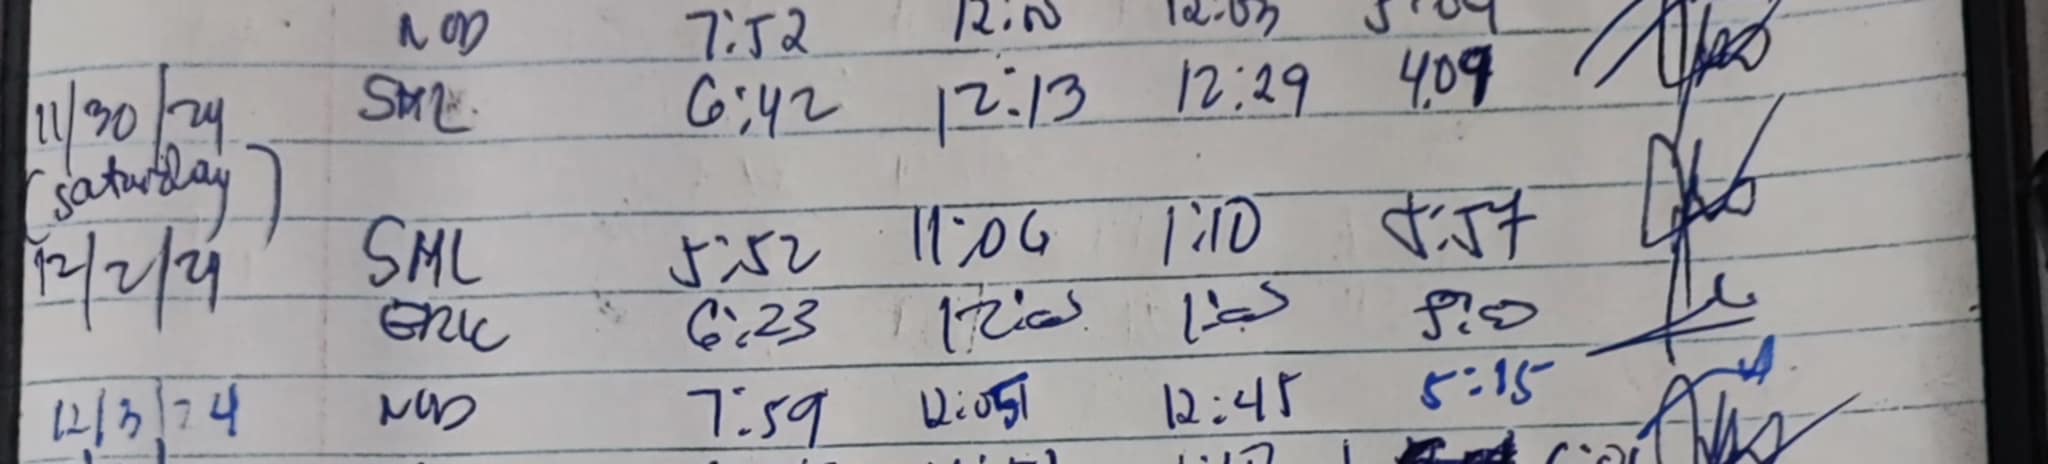 NOD 7:52 12:00 12:03
11/30/24 SML 6:42 12:13 12:29 4:09
(saturday)
12/2/24 SML 5:52 11:06 1:10 5:57
ERIC 6:23 12:00 1:00 5:00
12/3/24 NOD 7:59 12:05 12:45 5:15